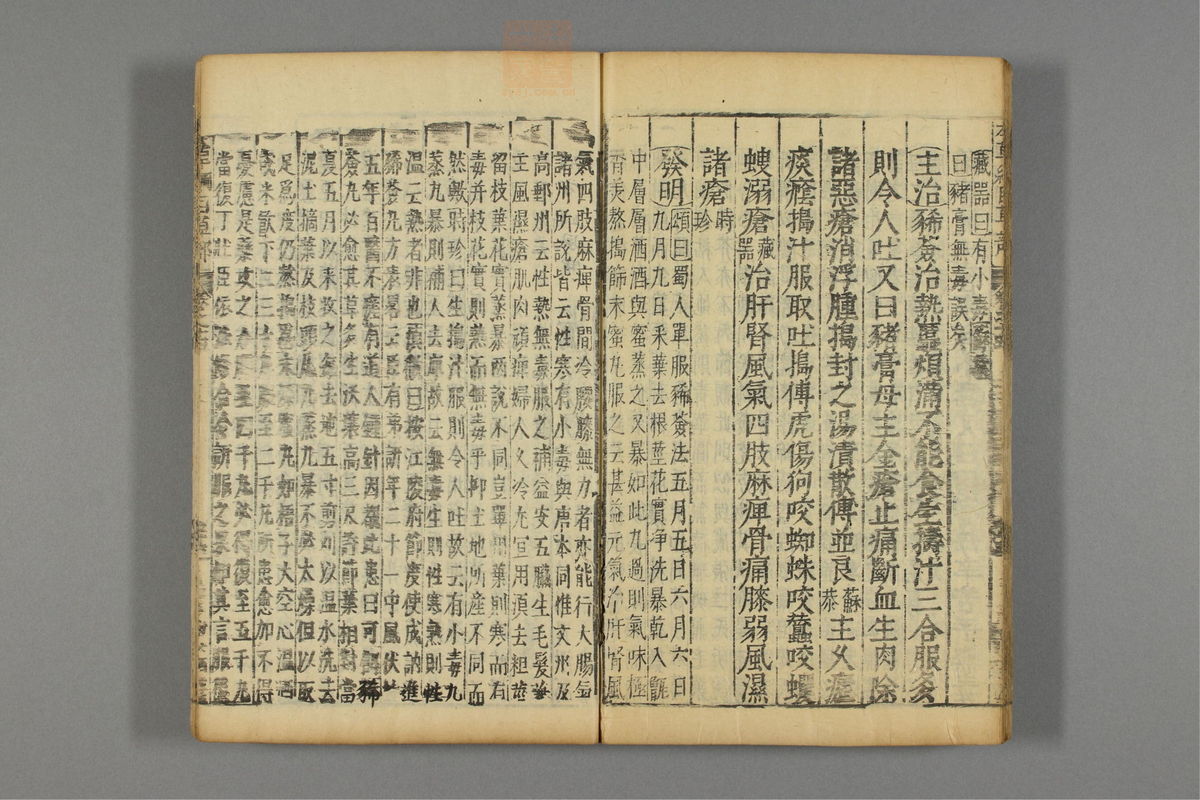 藏器曰有小毒蘇恭
曰豬膏無毒誤矣
主治豨薟治熱䘌煩滿不能食生擣汁三合服多
則令人吐又曰豬膏母主金瘡止痛斷血生肉除
諸惡瘡消浮腫搗封之湯漬散傅並良蘇恭主久瘧
痰癊搗汁服取吐搗傅虎傷狗咬蜘蛛咬蠶咬蠼
螋溺瘡藏器治肝腎風氣四肢麻痺骨痛膝弱風濕
諸瘡時珍
發明頌曰蜀人單服豨薟法五月五日六月六日
九月九日采葉去根莖花實淨洗暴乾入甑
中層層洒酒與蜜蒸之又暴如此九過則氣味極
香美熬搗篩末蜜丸服之云甚益元氣治肝腎風
氣四肢麻痺骨間冷腰膝無力者亦能行大腸氣
諸州所說皆云性寒有小毒與唐本同惟文州及
高郵州云性熱無毒服之補益安五臟生毛髮兼
主風濕瘡肌肉頑痺婦人久冷尤宜用須去粗莖
留枝葉花實蒸暴兩說不同豈單用葉則寒而有
毒并枝花實則熱而無毒乎抑土地所產不同而
然歟時珍曰生搗汁服則令人吐故云有小毒九
蒸九暴則補人去痺故云無毒生則性寒熟則性
溫云熱者非也頌曰按江陵府節度使成訥進
豨薟丸方表畧云臣有弟訮年二十一中風伏枕
五年百醫不瘥有道人鍾針因覩此患曰可餌豨
薟丸必愈其草多生沃葉高三尺許節葉相對當
夏五月以來收之每去地五寸剪刈以溫水洗去
泥土摘葉及枝頭凡九蒸九暴不必太燥但以取
足為度仍熬搗為末丸如梧子大空心溫酒
或米飲下二三十丸至二千丸所患愈加不得
憂慮是藥攻之力服至四千丸必得復至五千丸
當復丁壯臣依法修合令訮服之果如其言服後